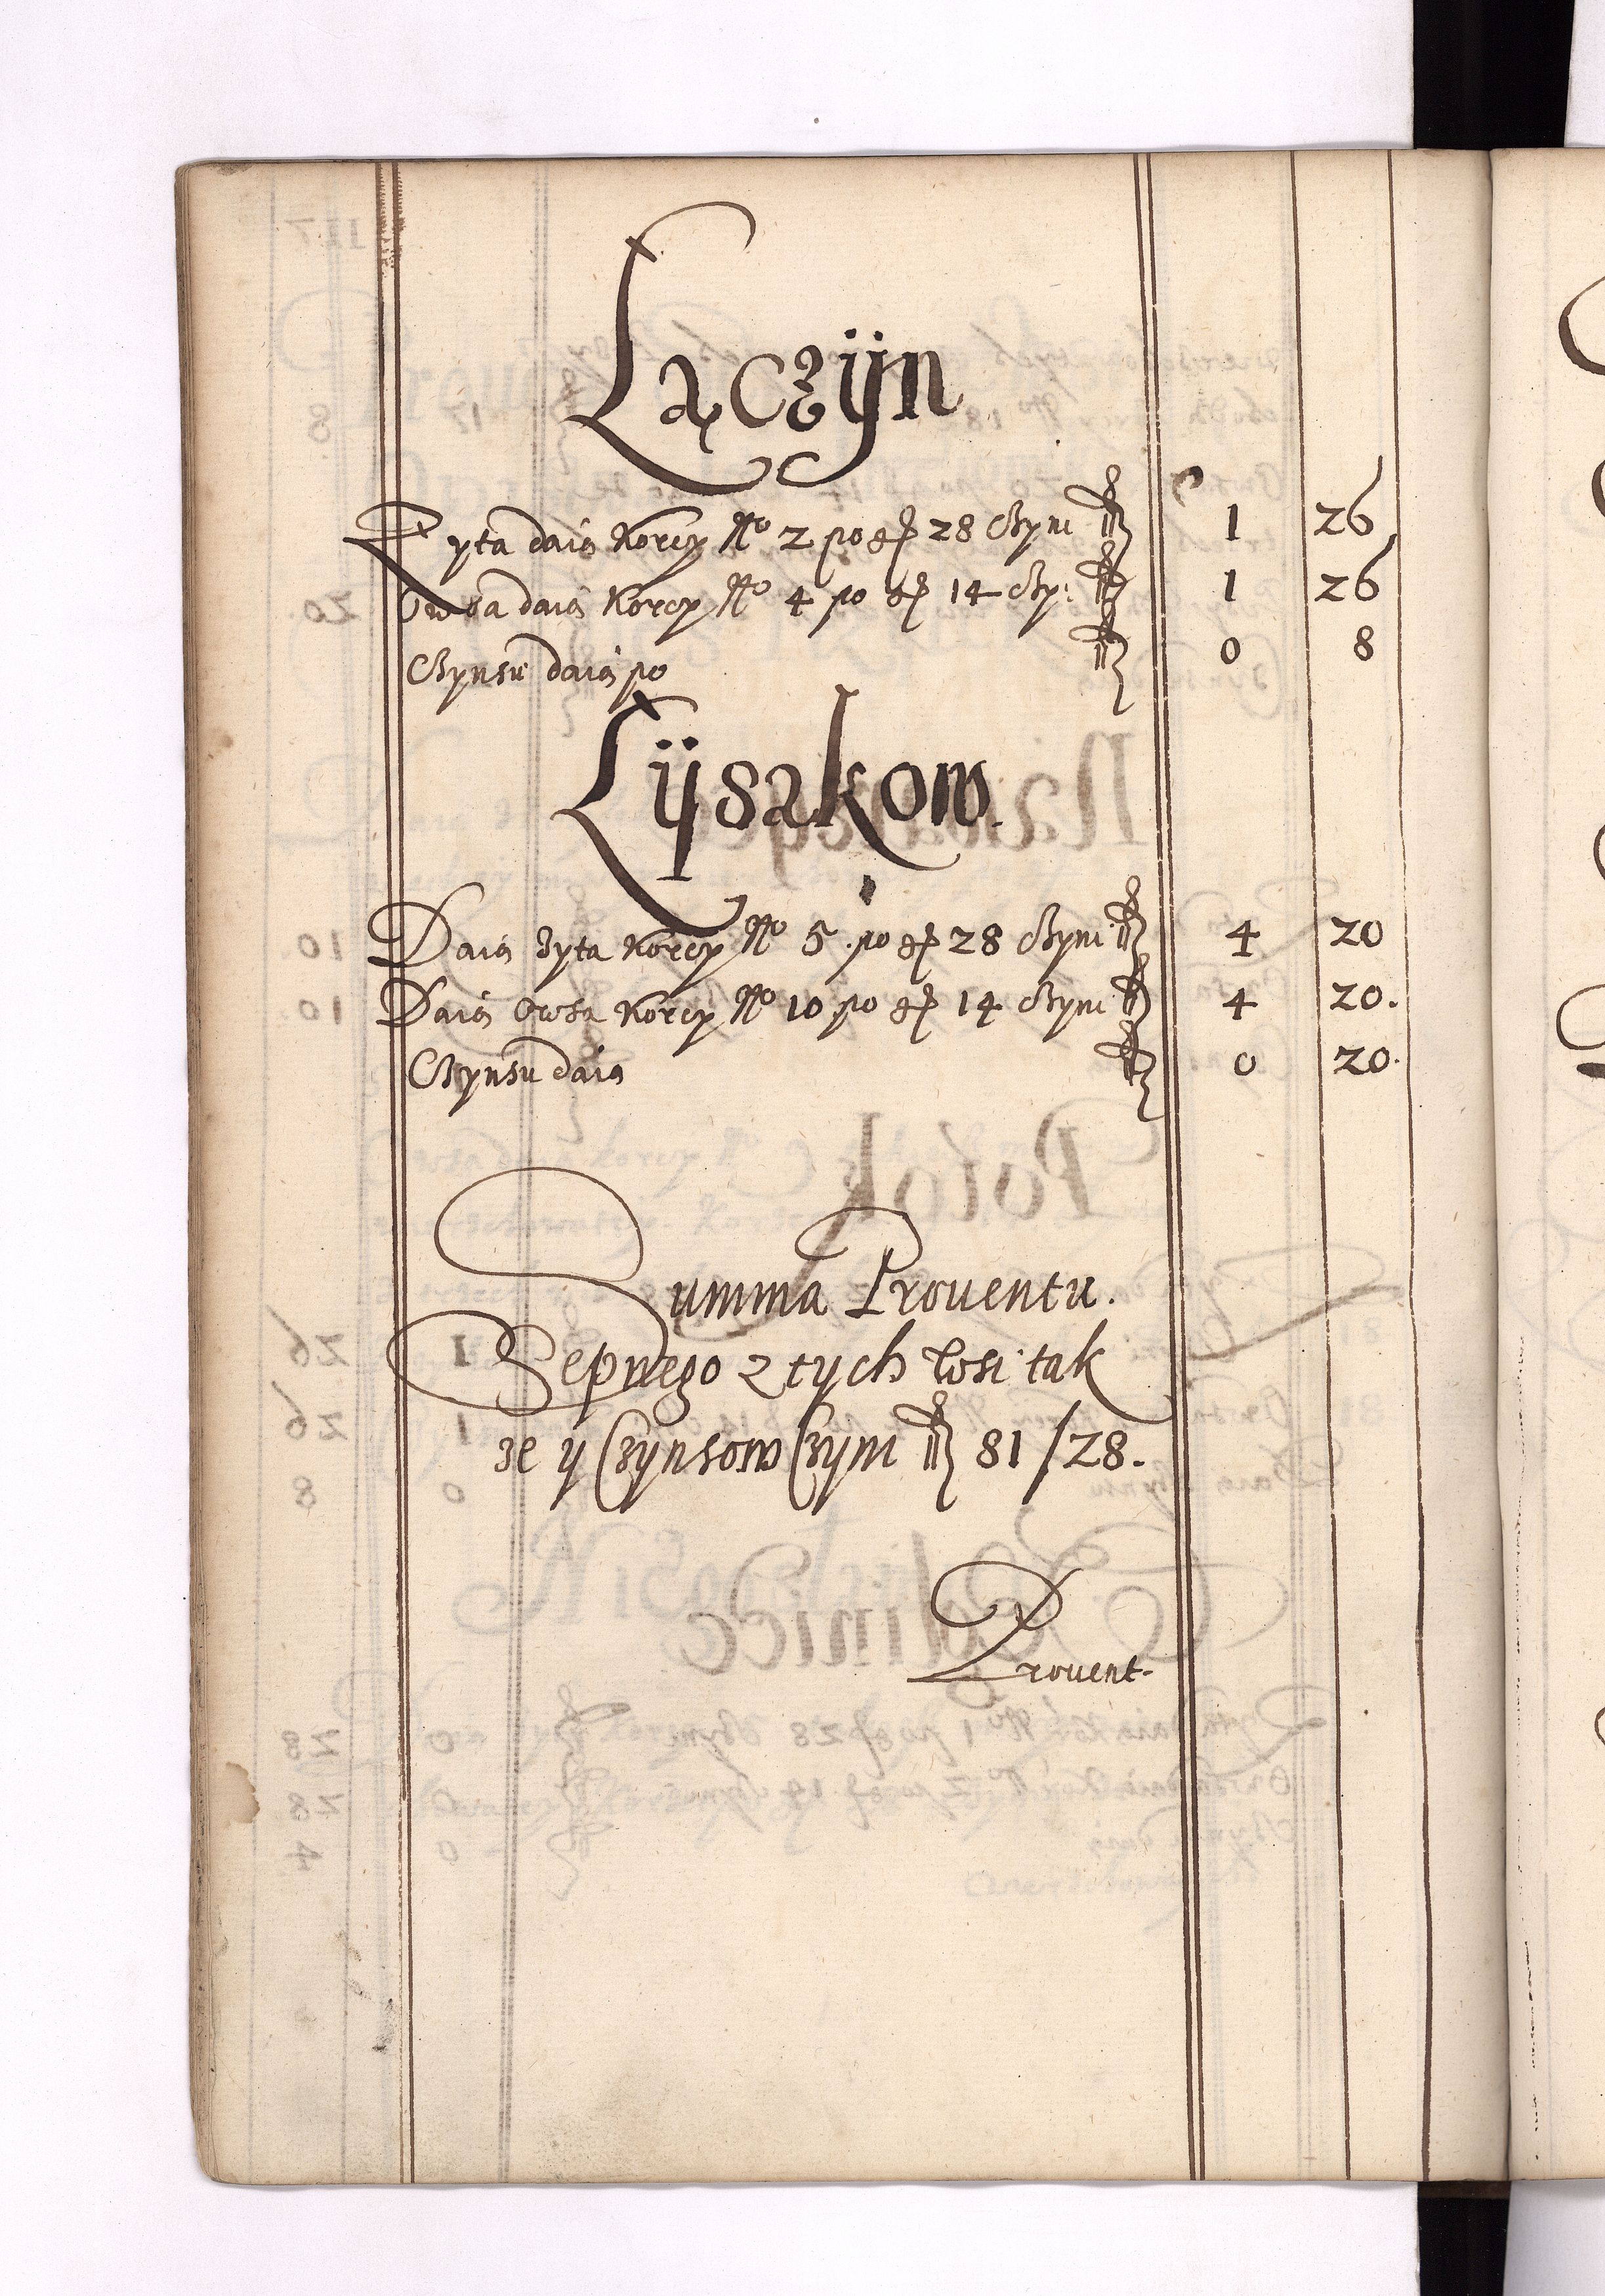 Łączÿn
Zyta daią Korcy No 2 po gr 28 Czyni fl 1 26
Owsa daią Korcy No 4 po gr 14 Czy: fl 1 26
Czynsu daią po fl 0 8
Łÿsakow.
Daią Zyta Korcy No 5 po gr 28 Czyni fl 4 20
Daią Owsa Korcy No 10 po gr 14 Czyni fl 4 20.
Czynsu daią fl 0 20.
Summa Prouentu.
Sepnego z tych wsi tak
ze ÿ Czynsow Czyni fl 81/28.
Prouent-